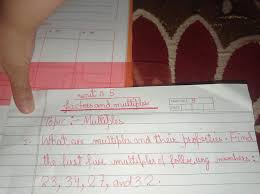 unit # 5
factors and multiples
Topic :- Multiples
What are multiples and their properties. Find
the last five multiples of following numbers:
23, 34, 27, and 32.